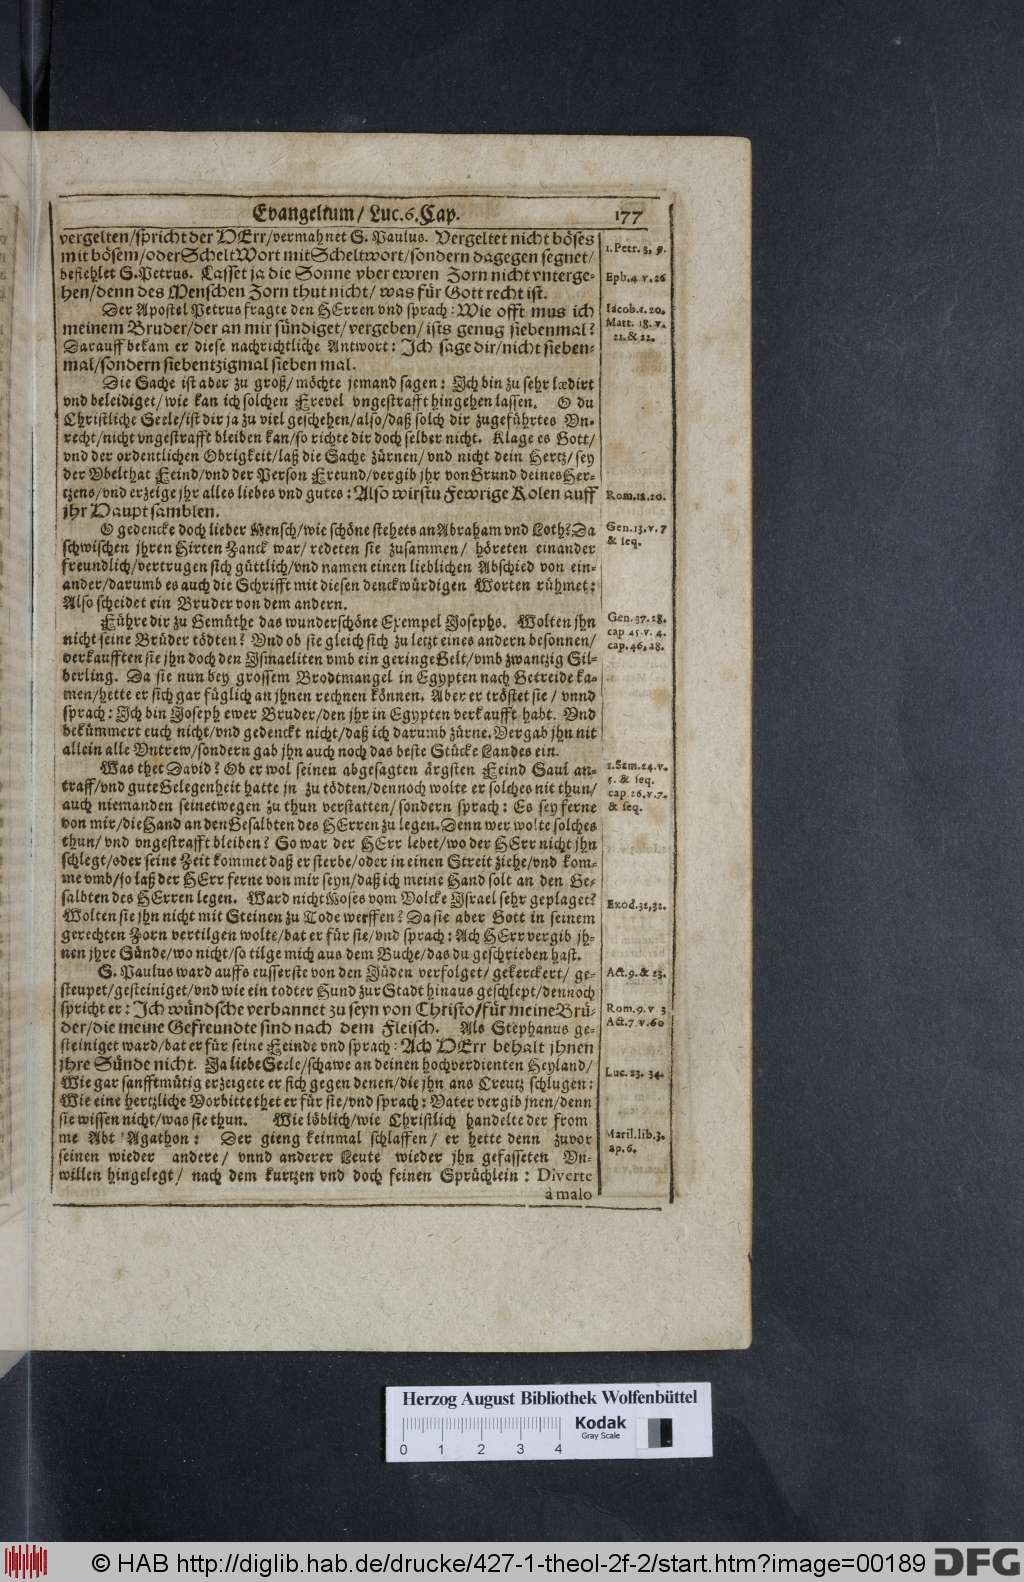 Evangelium/ Luc. 6. Cap. 177
vergelten/spricht der HErr/vermahnet S. Paulus. Vergeltet nicht böses
mit bösem/oder Schelt Wort mit Scheltwort/sondern dagegen segnet/
befiehlet S. Petrus. Lasset ja die Sonne vber ewren Zorn nicht vnterge-
hen/denn des Menschen Zorn thut nicht/ was für Gott recht ist.
Der Apostel Petrus fragte den HErren vnd sprach: Wie offt mus ich
meinem Bruder/der an mir sündiget/vergeben/ists genug siebenmal?
Darauff bekam er diese nachrichtliche Antwort: Ich sage dir/nicht sieben-
mal/sondern siebentzigmal sieben mal.
Die Sache ist aber zu groß/möchte jemand sagen: Ich bin zu sehr lædirt
vnd beleidiget/wie kan ich solchen Frevel vngestrafft hingehen lassen. O du
Christliche Seele/ist dir ja zu viel geschehen/also/daß solch dir zugeführtes Vn-
recht/nicht vngestrafft bleiben kan/so richte dir doch selber nicht. Klage es Gott/
vnd der ordentlichen Obrigkeit/laß die Sache zürnen/vnd nicht dein Hertz/sey
der Vbelthat Feind/vnd der Person Freund/vergib jhr von Grund deines Her-
tzens/vnd erzeige jhr alles liebes vnd gutes: Also wirstu Fewrige Kolen auff
jhr Haupt samblen.
O gedencke doch lieber Mensch/wie schöne stehets an Abraham vnd Loth? Da
schwischen jhren Hirten Zanck war/redeten sie zusammen/ höreten einander
freundlich/vertrugen sich güttlich/vnd namen einen lieblichen Abschied von ein-
ander/darumb es auch die Schrifft mit diesen denckwürdigen Worten rühmet:
Also scheidet ein Bruder von dem andern.
Führe dir zu Gemüthe das wunderschöne Exempel Josephs. Wolten jhn
nicht seine Brüder tödten? Vnd ob sie gleich sich zu letzt eines andern besonnen/
verkaufften sie jhn doch den Ismaeliten vmb ein geringe Gelt/vmb zwantzig Sil-
berling. Da sie nun bey grossem Brodtmangel in Egypten nach Getreide ka-
men/hette er sich gar füglich an jhnen rechnen können. Aber er tröstet sie/ vnnd
sprach: Ich bin Joseph ewer Bruder/den jhr in Egypten verkaufft habt. Vnd
bekümmert euch nicht/vnd gedenckt nicht/daß ich darumb zürne. Vergab jhn nit
allein alle Vntrew/sondern gab jhn auch noch das beste Stücke Landes ein.
Was thet David? Ob er wol seinen abgesagten ärgsten Feind Saul an-
traff/vnd gute Gelegenheit hatte jn zu tödten/dennoch wolte er solches nit thun/
auch niemanden seinetwegen zu thun verstatten/sondern sprach: Es sey ferne
von mir/die Hand an den Gesalbten des HErren zu legen. Denn wer wolte solches
thun/vnd vngestrafft bleiben? So war der HErr lebet/wo der HErr nicht jhn
schlegt/oder seine Zeit kommet daß er sterbe/oder in einen Streit ziehe/vnd kom-
me vmb/so laß der HErr ferne von mir seyn/daß ich meine Hand solt an den Ge-
salbten des HErren legen. Ward nicht Moses vom Volcke Israel sehr geplaget?
Wolten sie jhn nicht mit Steinen zu Tode werffen? Da sie aber Gott in seinem
gerechten Zorn vertilgen wolte/bat er für sie/vnd sprach: Ach HErr vergib jh-
nen jhre Sünde/wo nicht/so tilge mich aus dem Buche/das du geschrieben hast.
S. Paulus ward auffs eusserste von den Jüden verfolget/ gekerckert/ ge-
steupet/gesteiniget/vnd wie ein todter Hund zur Stadt hinaus geschlept/dennoch
spricht er: Ich wündsche verbannet zu seyn von Christo/für meine Brü-
der/die meine Gefreundte sind nach dem Fleisch. Als Stephanus ge-
steiniget ward/bat er für seine Feinde vnd sprach: Ach HErr behalt jhnen
jhre Sünde nicht. Ja liebe Seele/schawe an deinen hochverdienten Heyland/
Wie gar sanfftmütig erzeigete er sich gegen denen/die jhn ans Creutz schlugen:
Wie eine hertzliche Vorbitte thet er für sie/vnd sprach: Vater vergib jnen/denn
sie wissen nicht/was sie thun. Wie löblich/wie Christlich handelte der from
me Abt Agathon: Der gieng keinmal schlaffen/ er hette denn zuvor
seinen wieder andere/ vnnd anderer Leute wieder jhn gefasseten Vn-
willen hingelegt/ nach dem kurtzen vnd doch feinen Sprüchlein: Diverte
à malo
1. Petr. 3. 9.
Eph. 4. v. 26
Iacob. 1. 20.
Matt. 18. v.
21. & 22.
Rom. 12. 20.
Gen. 13. v. 7
& seq.
Gen. 37. 28.
cap 45. v. 4.
cap. 46, 28.
1. Sam. 24. v.
5. & seq.
cap. 26. v. 7.
& seq.
Exod. 32, 32.
Act. 9. & 23.
Rom. 9. v 3
Act. 7 v. 60
Luc. 23. 34.
Maril. lib. 3.
ap. 6.
Herzog August Bibliothek Wolfenbüttel
0 1 2 3 4
Kodak
Gray Scale
© HAB http://diglib.hab.de/drucke/427-1-theol-2f-2/start.htm?image=00189
DFG